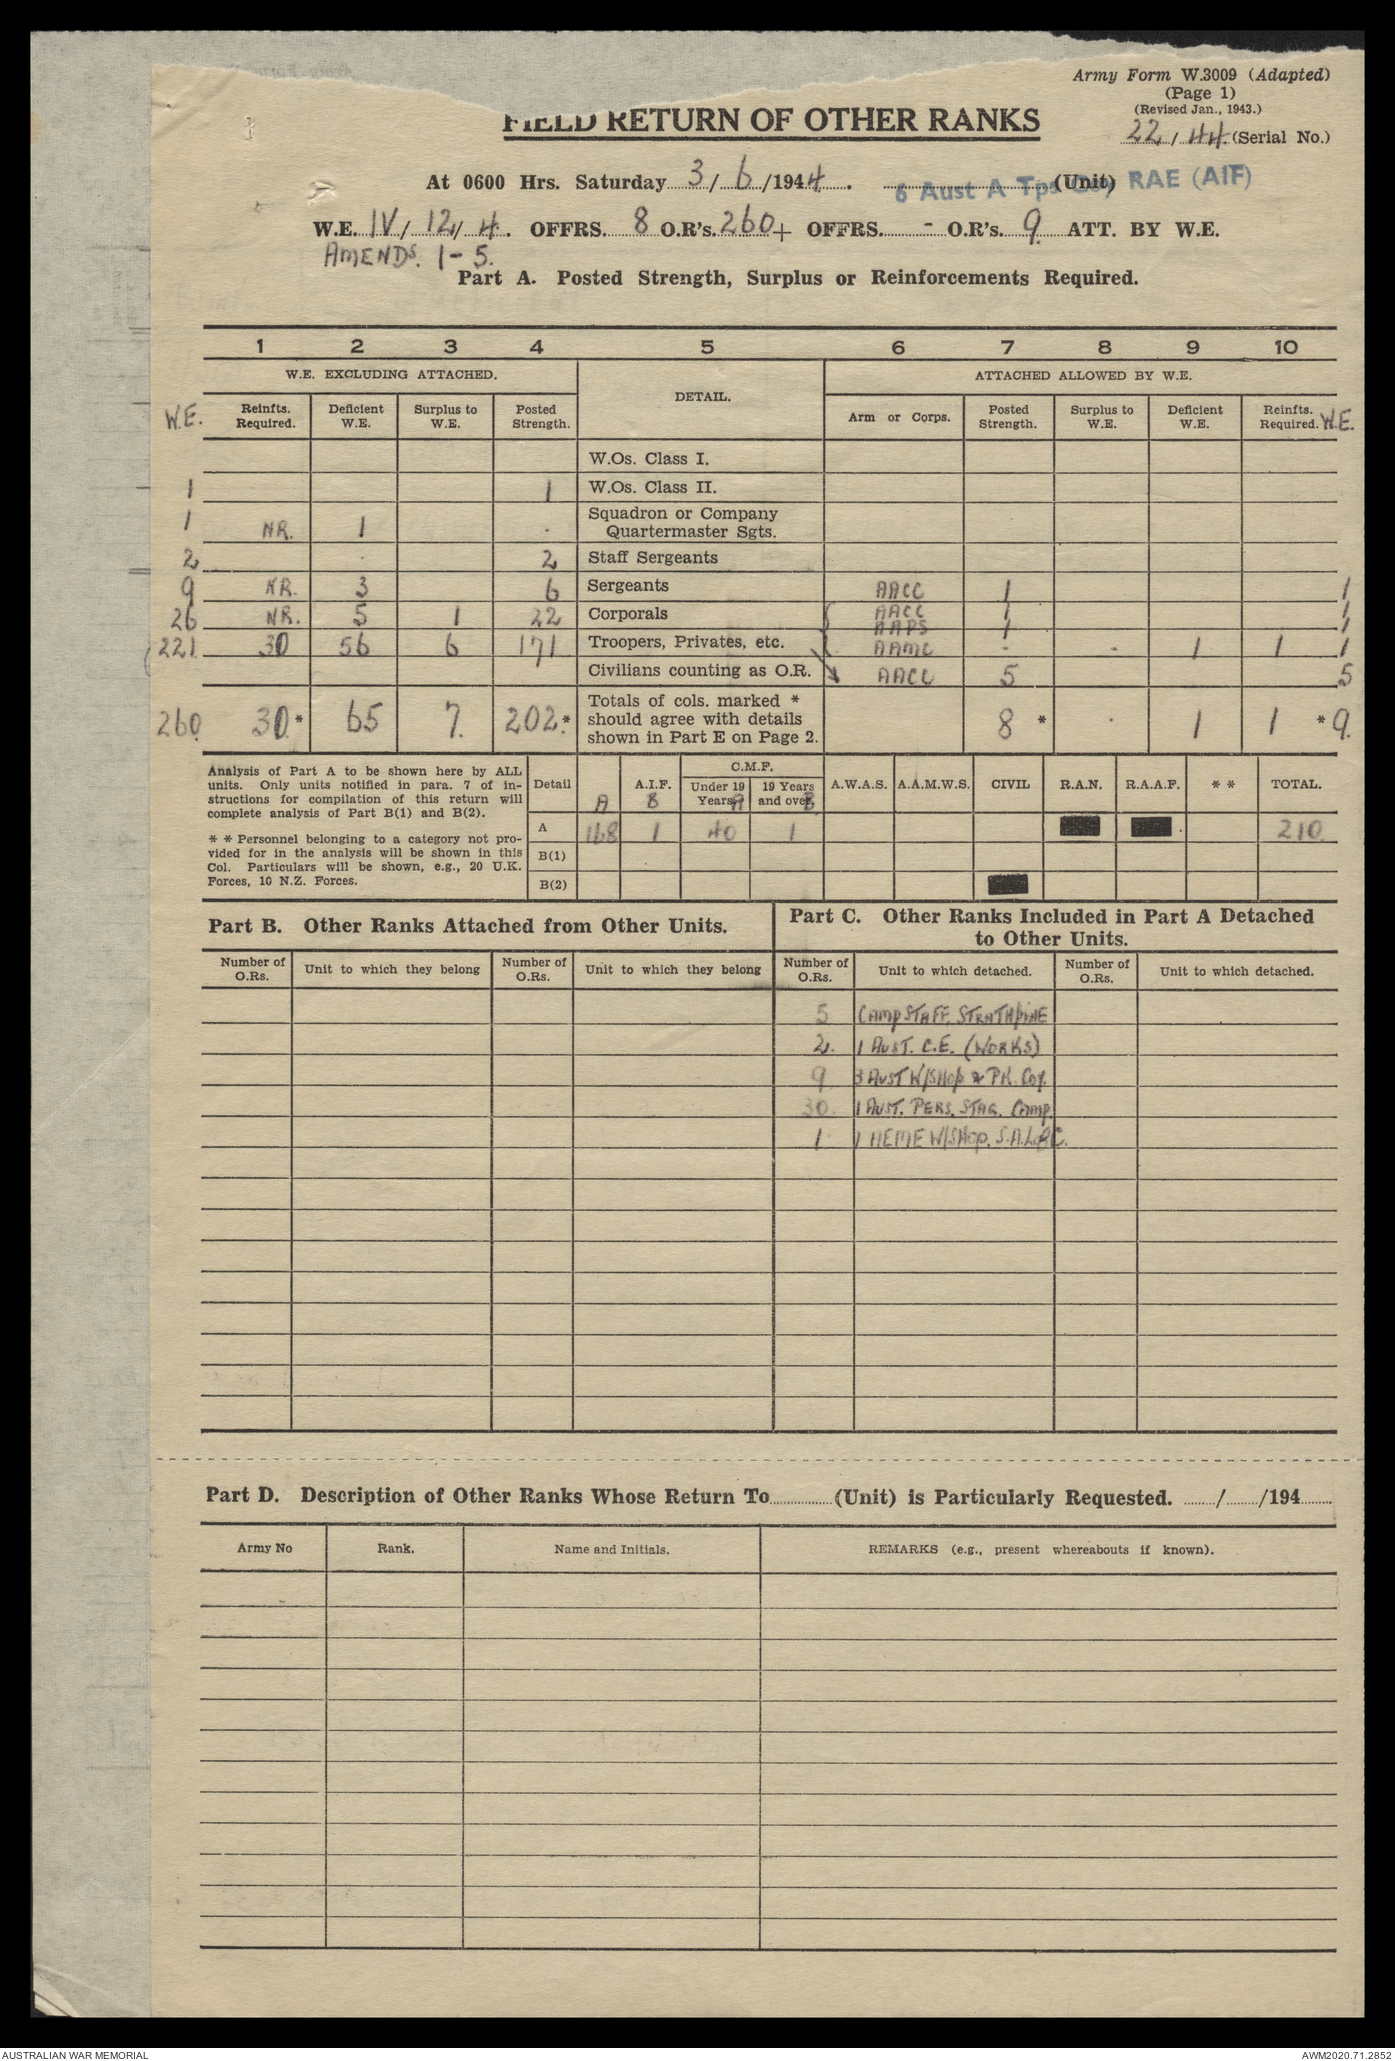 Army Form W.3009 (Adapted)
(Page 1)
(Revised Jan., 1943.)
22/44 (Serial No.)
FIELD RETURN OF OTHER RANKS
At 0600 Hrs. Saturday 3/6/1944. 6 Aust A Tps Coy RAE (AIF) (Unit)
W.E. IV/12/4. OFFRS. 8 O.R's. 260 + OFFRS. - O.R's. 9. ATT. BY W.E.
AMENDS. 1-5.
Part A. Posted Strength, Surplus or Reinforcements Required.
1 2 3 4 5 6 7 8 9 10
W.E. EXCLUDING ATTACHED. DETAIL. ATTACHED ALLOWED BY W.E.
W.E. Reinfts. Required. Deficient W.E. Surplus to W.E. Posted Strength. Arm or Corps. Posted Strength. Surplus to W.E. Deficient W.E. Reinfts. Required. W.E.
W.Os. Class I.
1 1 W.Os. Class II.
1 NR. 1 . Squadron or Company Quartermaster Sgts.
2 . 2 Staff Sergeants
9 NR. 3 6 Sergeants AACC 1 1
26 NR. 5 1 22 Corporals AACC 1 1
AAPS 1 1
221 30 56 6 171 Troopers, Privates, etc. AAMC - . 1 1 1
Civilians counting as O.R. AACC 5 5
260. 30* 65 7. 202.* Totals of cols. marked * should agree with details shown in Part E on Page 2. 8 * . 1 1 * 9.
Analysis of Part A to be shown here by ALL
units. Only units notified in para. 7 of in-
structions for compilation of this return will
complete analysis of Part B(1) and B(2).
* * Personnel belonging to a category not pro-
vided for in the analysis will be shown in this
Col. Particulars will be shown, e.g., 20 U.K.
Forces, 10 N.Z. Forces.
Detail A.I.F. C.M.F. A.W.A.S. A.A.M.W.S. CIVIL R.A.N. R.A.A.F. * * TOTAL.
A B Under 19 Years A 19 Years and over B
A 168 1 40 1 210
B(1)
B(2)
Part B. Other Ranks Attached from Other Units.
Part C. Other Ranks Included in Part A Detached
to Other Units.
Number of O.Rs. Unit to which they belong Number of O.Rs. Unit to which they belong Number of O.Rs. Unit to which detached. Number of O.Rs. Unit to which detached.
5 CAMP STAFF, STRATHPINE
2. 1 AUST. C.E. (WORKS)
9 3 AUST W/SHOP & PK. COY.
30. 1 AUST. PERS. STAG. CAMP.
1 1 AEME W/SHOP. S.A.L of C.
Part D. Description of Other Ranks Whose Return To (Unit) is Particularly Requested. / /194
Army No Rank. Name and Initials. REMARKS (e.g., present whereabouts if known).
AUSTRALIAN WAR MEMORIAL AWM2020.71.2852